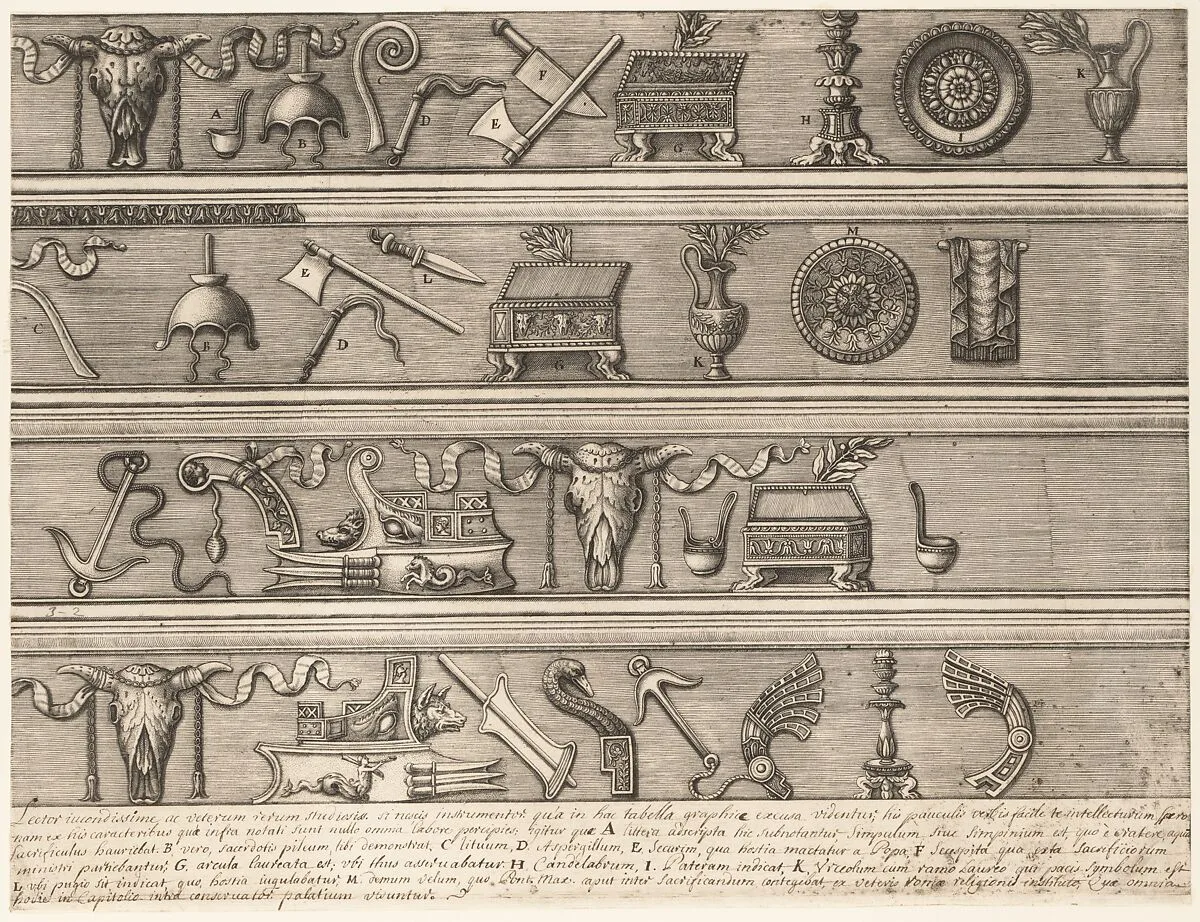 A B C D E F G H I K
C B E D L G K M
3-2
Lector iucondissime, ac veterum rerum studiosiss. si nescis instrumentor. quæ in hac tabella graphicæ excusa videntur, his pauculis verbis facile te intellecturum, spero
nam ex his caracteribus quæ infra notati sunt nullo omnia labore percipies, igitur quæ A littera adscripta hic subnotantur Simpulum siue Simpinium est, quo e cratere aqua
sacrificulus hauriebat. B vero, sacerdotis pileum, tibi demonstrat, C lituum, D. Aspergillum, E Securim, qua hostia mactatur a Popa. F Secuspita qua exta Sacrificiorum
ministri partiebantur, G. arcula laureata est, vbi thus asseruabatur. H. Candelabrum, I. Pateram indicat, K. Vrceolum cum ramo laureo qui pacis symbolum est
L vbi pugio sit indicat, quo, hostia iugulabatur, M. demum velum, quo, Pont. Max. caput inter Sacrificandum contegebat ex veteris romæ religionis instituto, Quæ omnia
hodie in Capitolio intra conseruator. palatium visuntur.